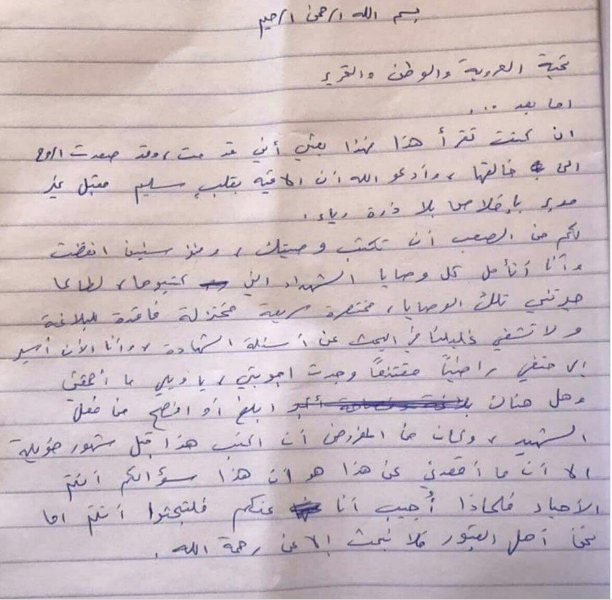 بسم الله الرحمن الرحيم
تحية العروبة والوطن والتحرير
اما بعد ...
ان كنت تقرأ هذا فهذا يعني أني قد مت، وقد صعدت الروح
الى خالقها، وأدعو الله أن الاقيه بقلب سليم مقبل غير
مدبر بإخلاص بلا ذرة رياء.
لكم من الصعب أن تكتب وصيتك، ومنذ سنين انقضت
وأنا أتأمل كل وصايا الشهداء التي كتبوها، لطالما
حيرتني تلك الوصايا، مختصرة سريعة مختزلة فاقدة للبلاغة
ولا تشفي غليلنا في البحث عن أسئلة الشهادة، وأنا الآن أسير
الى حتفي راضياً مقتنعاً وجدت اجوبتي، يا ويلي ما أحمقني
وهل هناك ابلغ أو افصح من فعل
الشهيد، وكان من المفروض أن اكتب هذا قبل شهور طويلة
الا أن ما أقعدني عن هذا هو أن هذا سؤالكم أنتم
الأحياء فلماذا أُجيب أنا عنكم فلتبحثوا أنتم اما
نحن أهل القبور فلا نبحث إلا عن رحمة الله.